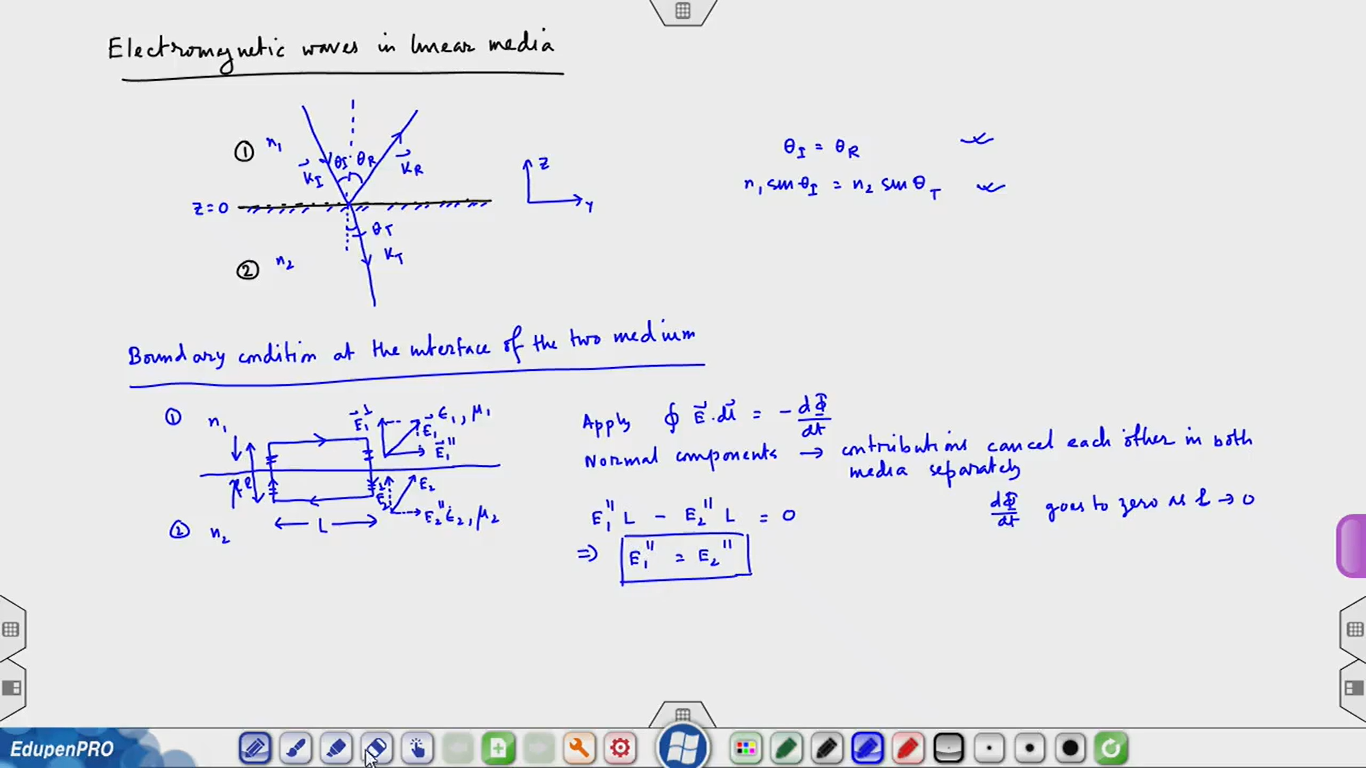 Electromagnetic waves in linear media
① n₁
θ_I θ_R
k⃗_I
k⃗_R
z
Z=0
Y
θ_T
② n₂
k_T
θ_I = θ_R
n₁ sinθ_I = n₂ sinθ_T
Boundary condition at the interface of the two medium
① n₁
E⃗₁^⊥ E⃗₁ ε₁, μ₁
E⃗₁^∥
E₂
② n₂
L
E₂^∥ ε₂, μ₂
Apply ∮ E⃗.dl⃗ = - dΦ/dt
Normal components → contributions cancel each other in both
media separately
dΦ/dt goes to zero as l → 0
E₁^∥ L - E₂^∥ L = 0
⇒ E₁^∥ = E₂^∥
EdupenPRO